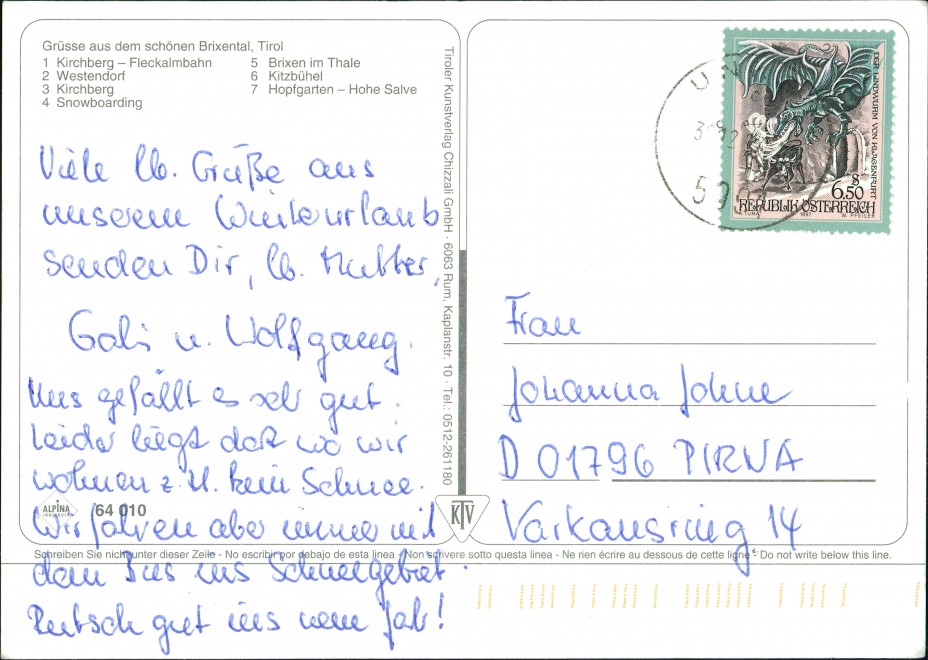 Grüsse aus dem schönen Brixental, Tirol
1 Kirchberg – Fleckalmbahn
2 Westendorf
3 Kirchberg
4 Snowboarding
5 Brixen im Thale
6 Kitzbühel
7 Hopfgarten – Hohe Salve
Viele lb. Grüße aus
unserem Winterurlaub
senden Dir, lb. Mutter,
Gabi u. Wolfgang.
Uns gefällt es sehr gut.
Leider liegt dort wo wir
wohnen z. Zt. kein Schnee.
Wir fahren aber immer mit
dem Bus ins Schneegebiet.
Rutsch gut ins neue Jahr!
ALPINA
64 010
Tiroler Kunstverlag Chizzali GmbH · 6063 Rum, Kaplanstr. 10 · Tel.: 0512-261180
KTV
DER LINDWURM VON KLAGENFURT
S
6.50
REPUBLIK ÖSTERREICH
A. TUMA 1997 W. PFEILER
Frau
Johanna Johne
D 01796 PIRNA
Varkausring 14
Schreiben Sie nicht unter dieser Zeile - No escribir por debajo de esta linea - Non scrivere sotto questa linea - Ne rien écrire au dessous de cette ligne - Do not write below this line.